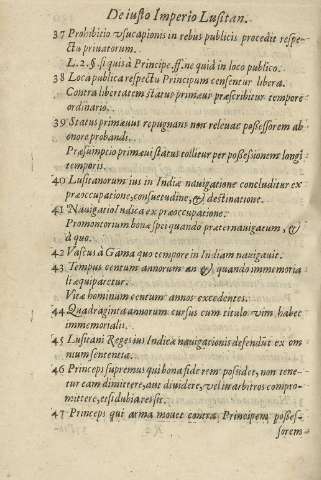 De iusto Imperio Lusitan.
37 Prohibitio vsucapionis in rebus publicis procedit respe-
ctu priuatorum.
L. 2. §. si quis à Principe. ff. ne quid in loco publico.
38 Loca publica respectu Principum censentur libera.
Contra libertatem status primæui præscribitur tempore
ordinario.
39 Status primæuus repugnans non releuat poßeßorem ab
onore probandi.
Præsumptio primæui status tollitur per poßeßionem longi
temporis.
40 Lusitanorum ius in Indiæ nauigatione concluditur ex
præoccupatione, consuetudine, & destinatione.
41 Nauigatio Indica ex præoccupatione.
Promontorium bonæ spei quando præternauigatum, &
à quo.
42 Vascus à Gama quo tempore in Indiam nauigauit.
43 Tempus centum annorum an &, quando immemoria
li æquiparetur.
Vitæ hominum centum annos excedentes.
44 Quadraginta annorum cursus cum titulo vim habet
immemorialis.
45 Lusitani Reges ius Indicæ nauigationis defendũt ex om
nium sententia.
46 Princeps supremus qui bona fide rem poßidet, non tene-
tur eam dimittere, aut diuidere, vel in arbitros compro-
mittere, etsi dubia res sit.
47 Princeps qui arma mouet contra Principem poßes-
sorem